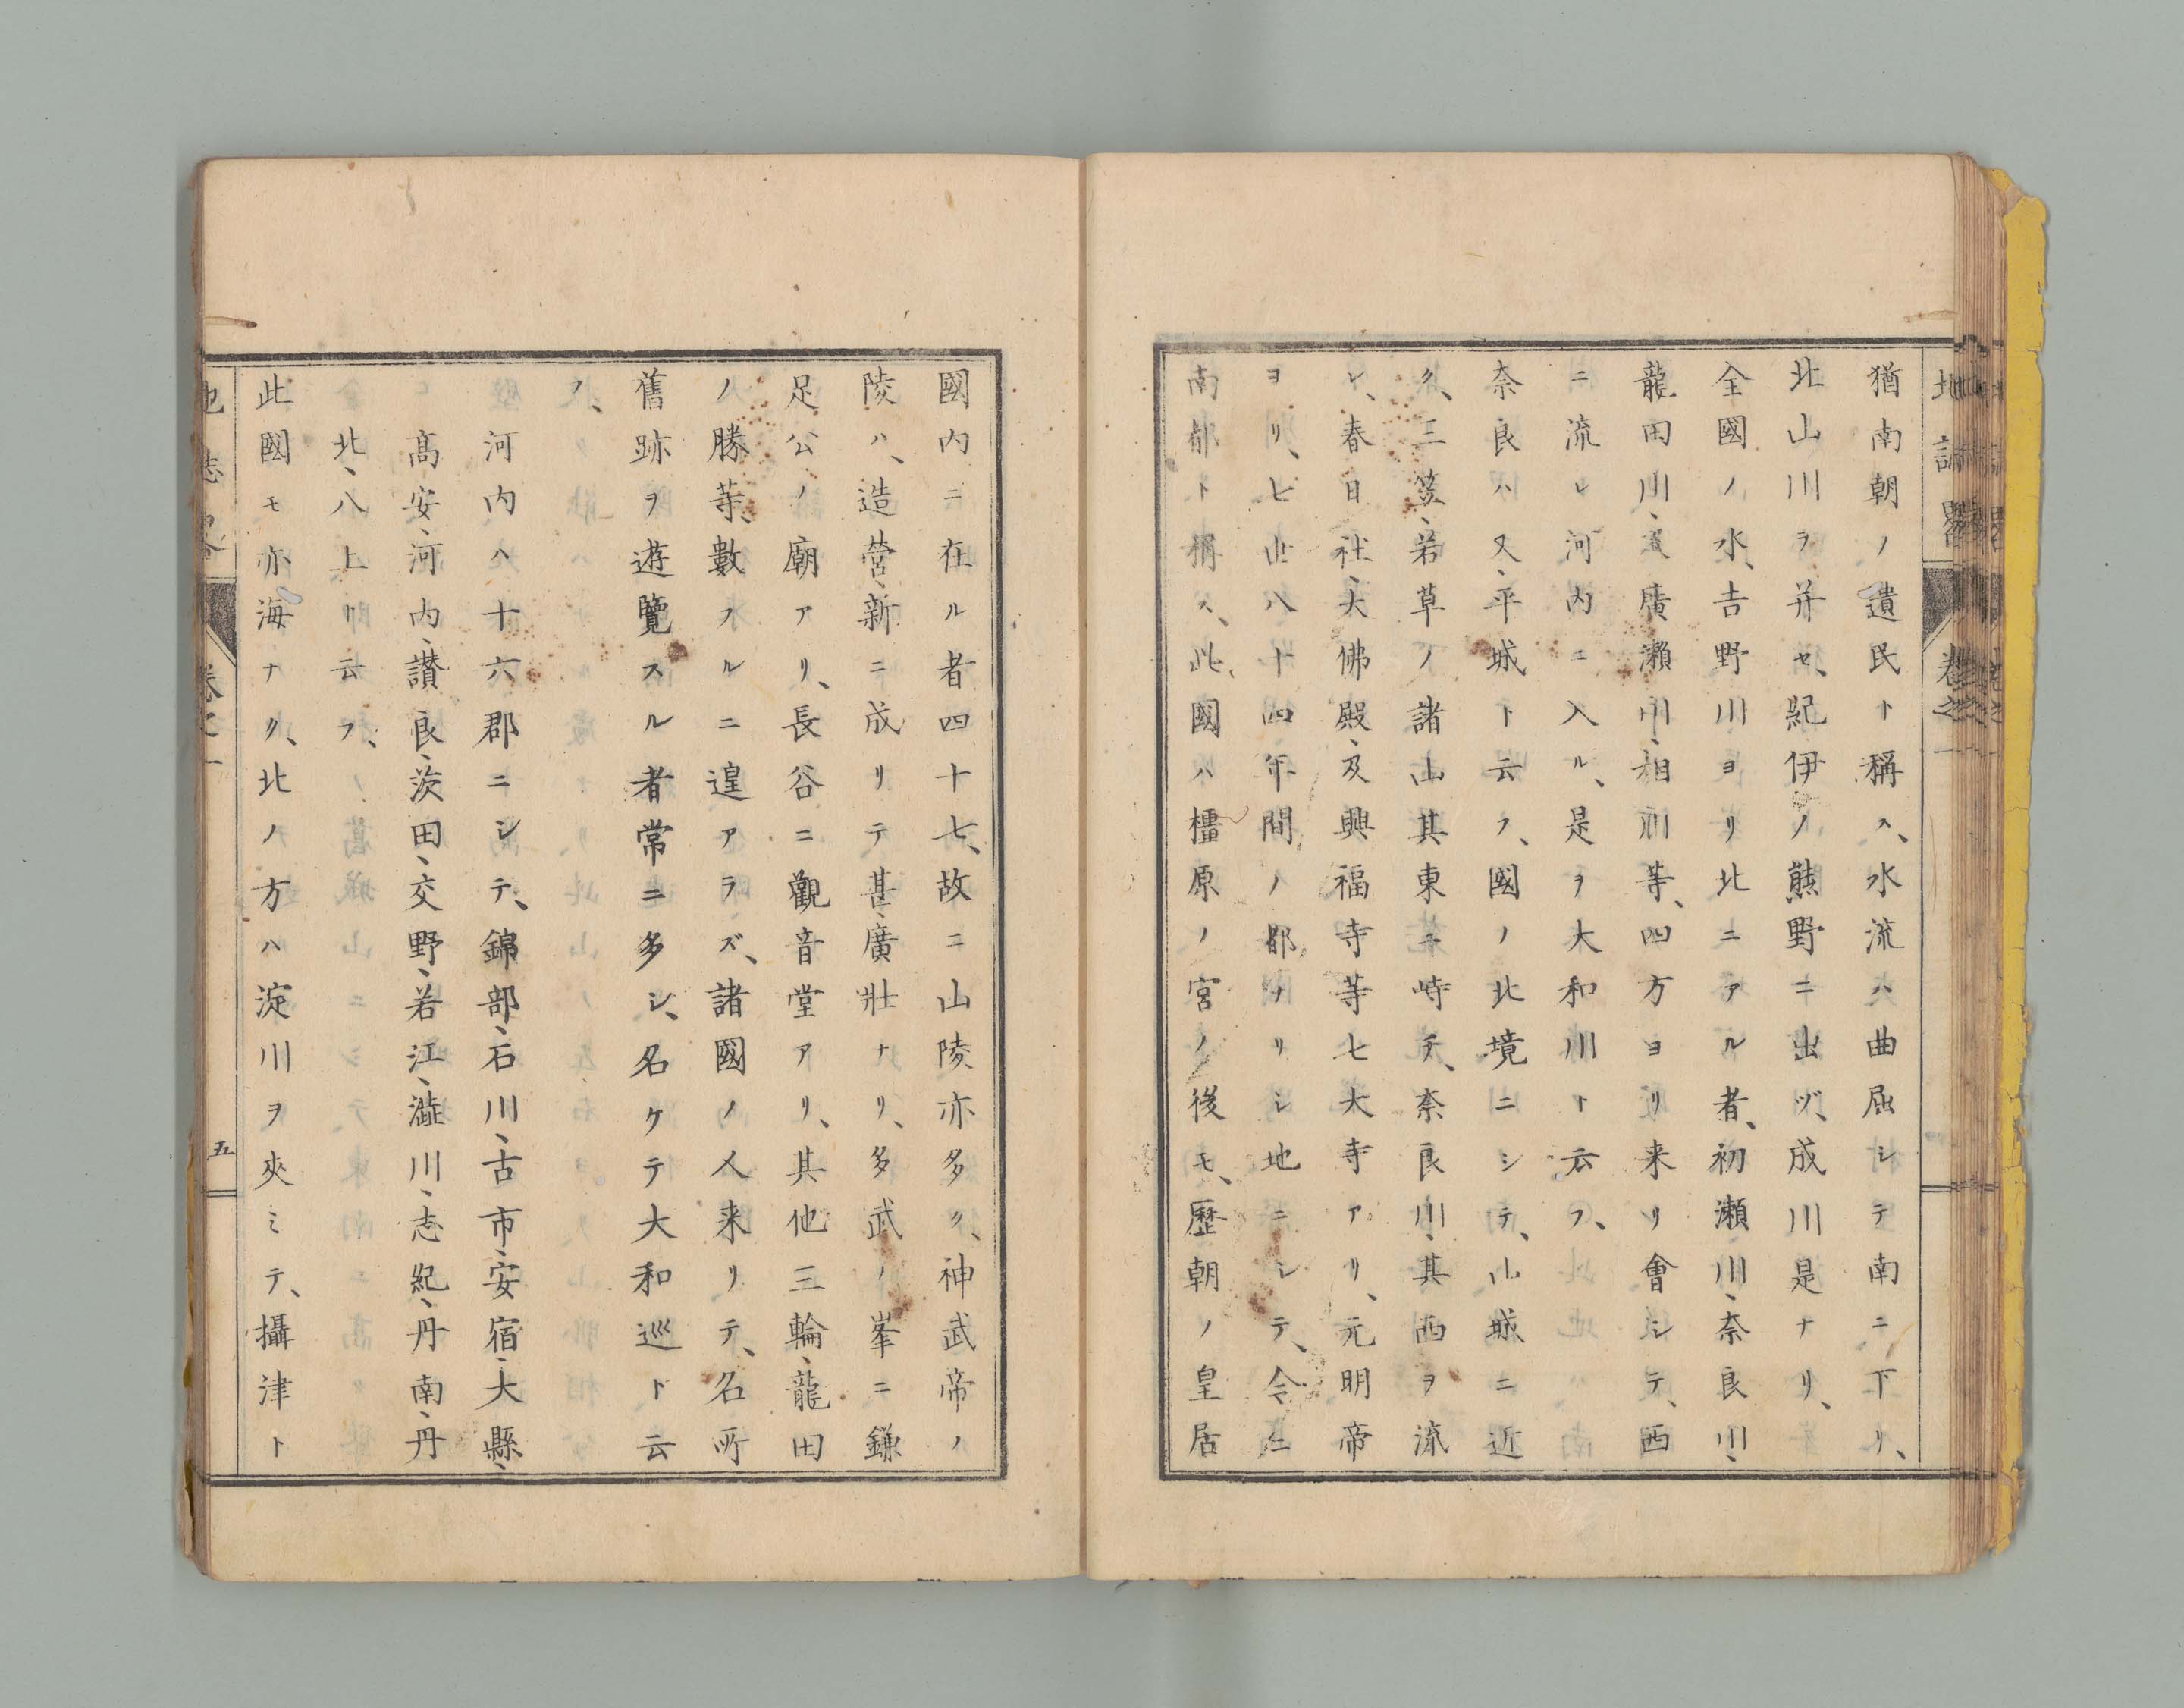 地誌畧 卷之一
猶南朝ノ遺民ト稱ス、水流ハ曲屈シテ南ニ下リ、
北山川ヲ并セ、紀伊ノ熊野ニ出ヅ、成川是ナリ、
全國ノ水、吉野川ヨリ北ニアル者、初瀬川、奈良川、
龍田川、及廣瀬川、相川等、四方ヨリ来リ會シテ、西
ニ流レ河内ニ入ル、是ヲ大和川ト云フ、
奈良ハ又、平城ト云フ、國ノ北境ニシテ、山城ニ近
ク、三笠、若草ノ諸山其東ニ峙チ、奈良川、其西ヲ流
レ、春日社、大佛殿、及興福寺等七大寺アリ、元明帝
ヨリ、七世八十四年間ノ都ナリシ地ニシテ、今ニ
南都ト稱ス、此國ハ橿原ノ宮ノ後モ、歴朝ノ皇居
國内ニ在ル者四十七、故ニ山陵亦多ク、神武帝ノ
陵ハ、造營、新ニ成リテ甚、廣壯ナリ、多武ノ峯ニ鎌
足公ノ廟アリ、長谷ニ觀音堂アリ、其他三輪、龍田
ノ勝等、數フルニ遑アラズ、諸國ノ人来リテ、名所
舊跡ヲ遊覽スル者常ニ多シ、名ケテ大和巡ト云
フ、
河内ハ十六郡ニシテ、錦部、石川、古市、安宿、大縣、
高安、河内、讃良、茨田、交野、若江、澁川、志紀、丹南、丹
北、八上リ云フ、
此國モ亦海ナク、北ノ方ハ淀川ヲ夾ミテ、攝津ト
地誌畧 卷之一 五